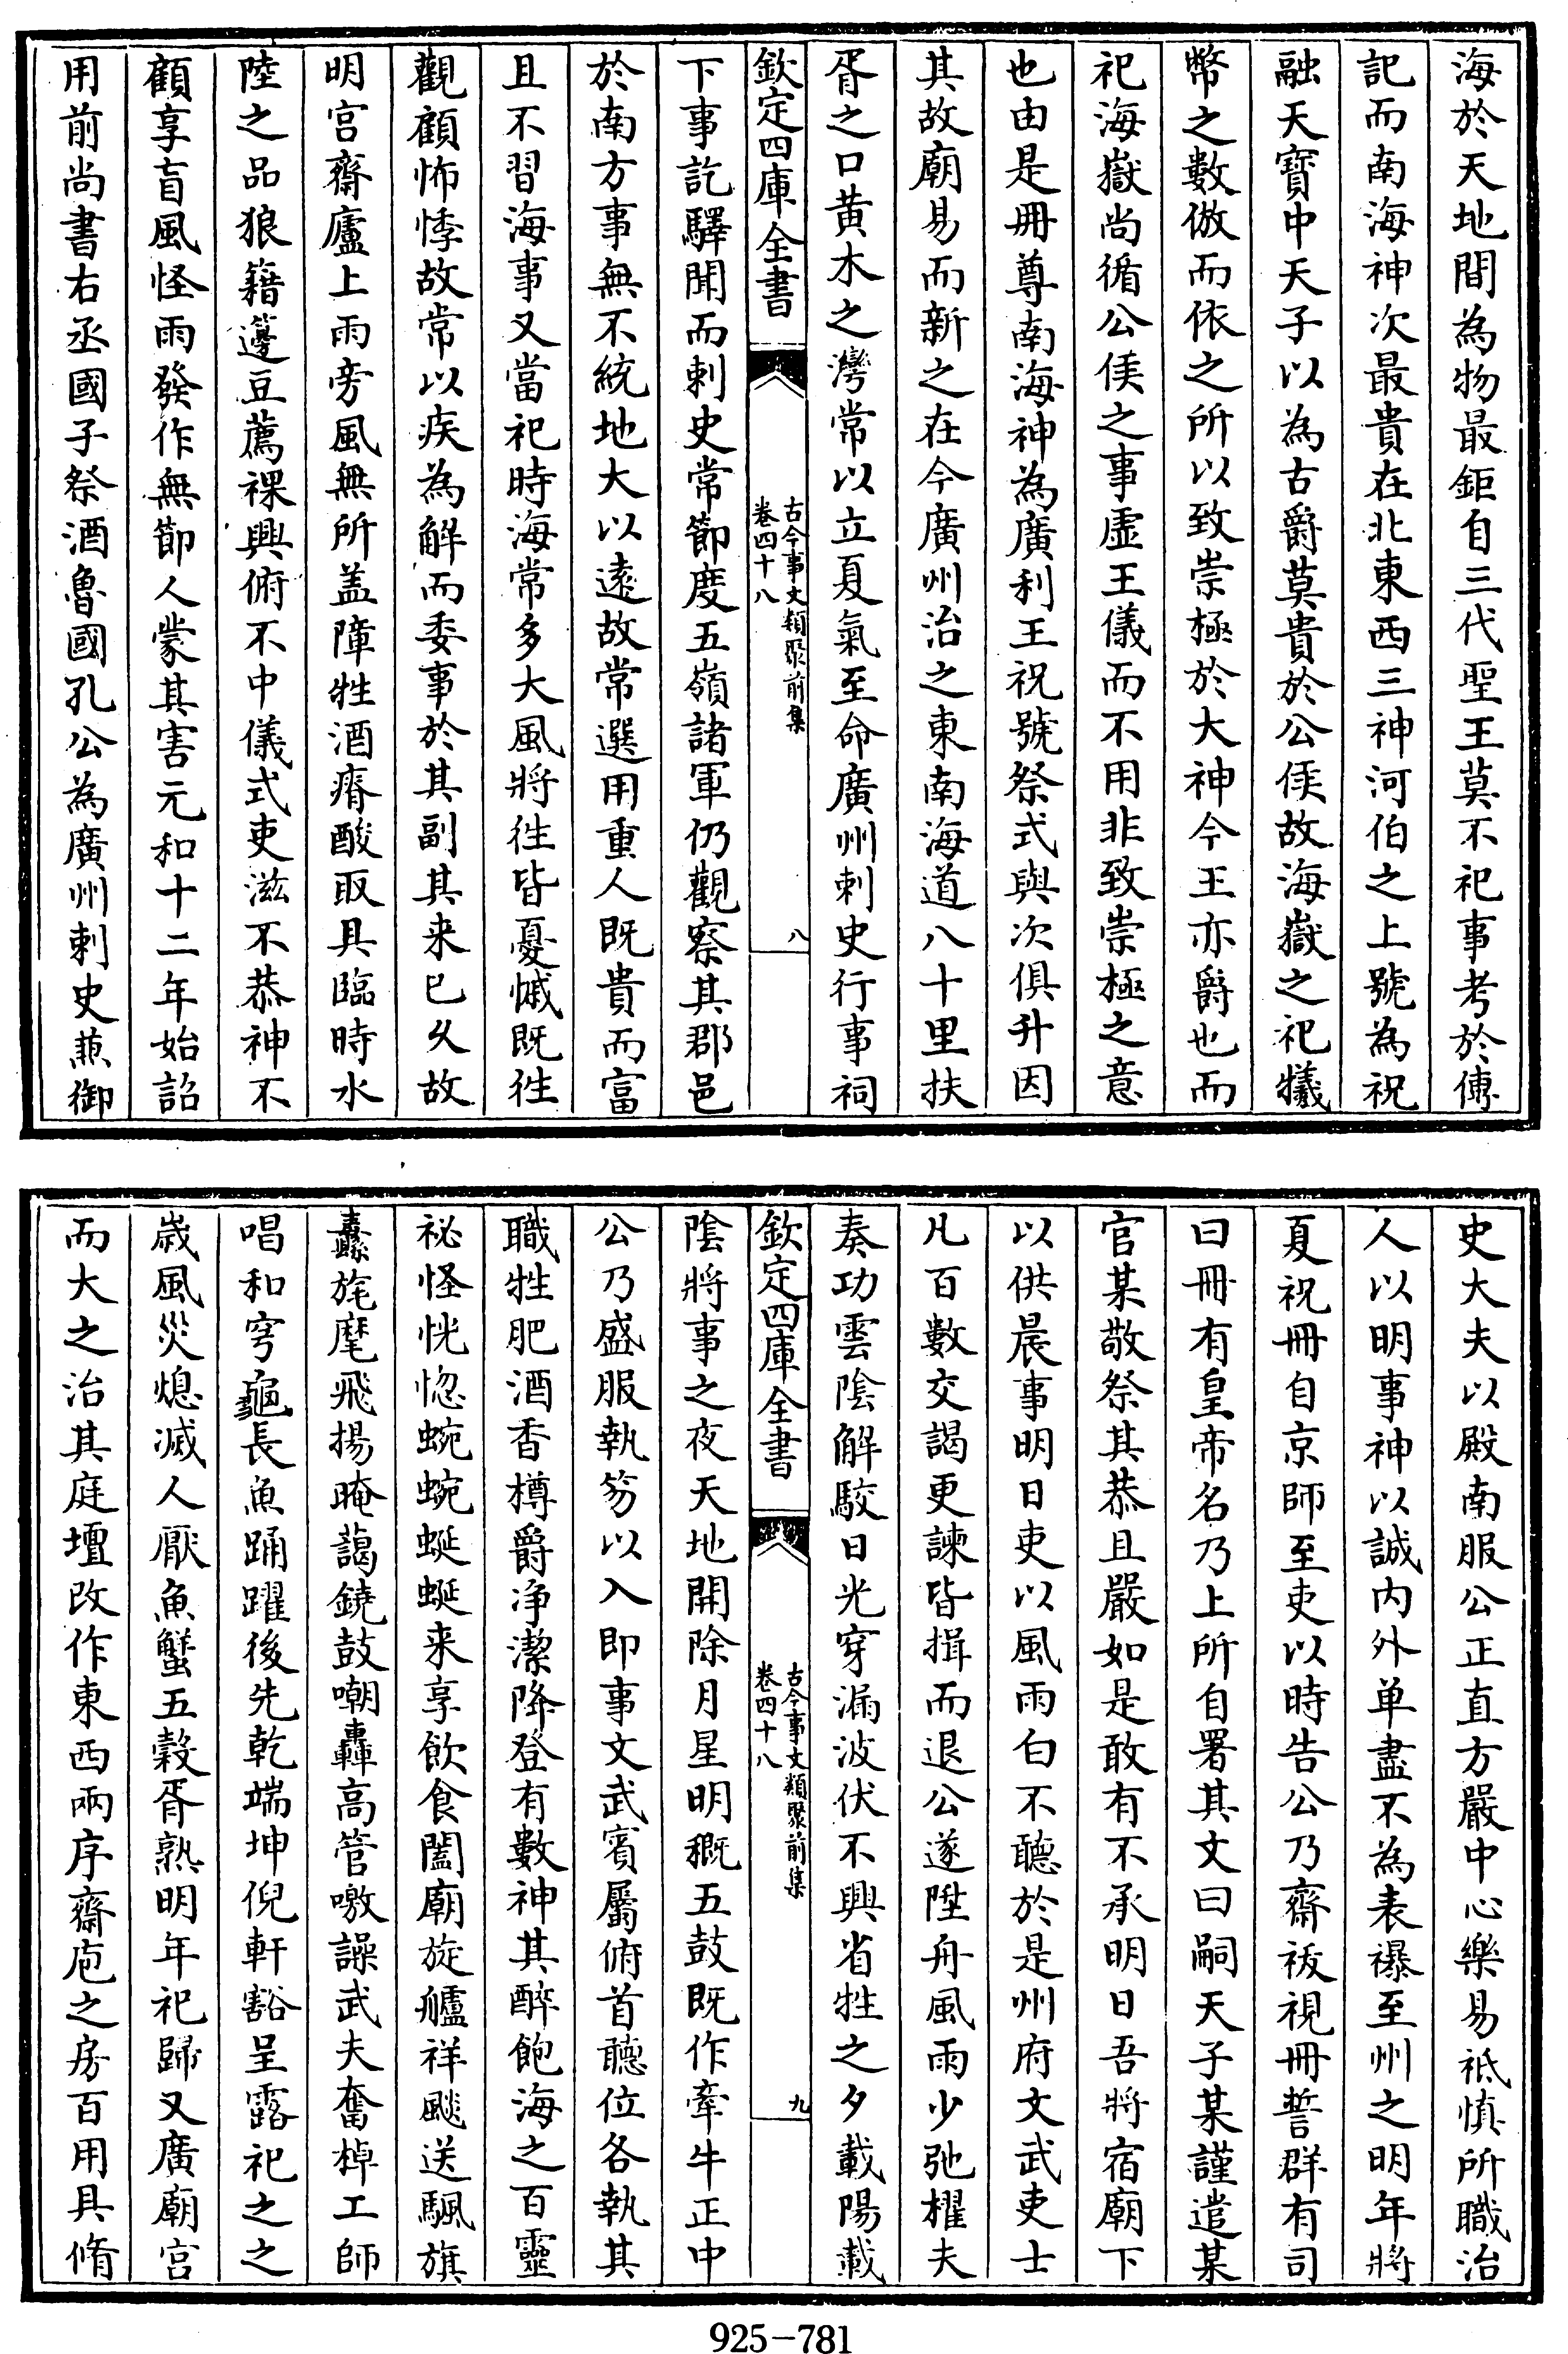 海於天地間為物最鉅自三代聖王莫不祀事考於傳
記而南海神次最貴在北東西三神河伯之上號為祝
融天寳中天子以為古爵莫貴於公侯故海嶽之祀犧
幣之數倣而依之所以致崇極於大神今王亦爵也而
祀海嶽尚循公侯之事虚王儀而不用非致崇極之意
也由是冊尊南海神為廣利王祝號祭式與次俱升因
其故廟易而新之在今廣州治之東南海道八十里扶
胥之口黄木之灣常以立夏氣至命廣州刺史行事祠
欽定四庫全書
古今事文類聚前集
卷四十八
八
下事訖驛聞而刺史常節度五嶺諸軍仍觀察其郡邑
於南方事無不統地大以遠故常選用重人既貴而富
且不習海事又當祀時海常多大風將往皆憂慽既往
觀顧怖悸故常以疾為解而委事於其副其来已久故
明宫齋廬上雨旁風無所盖障牲酒瘠酸取具臨時水
陸之品狼籍籩豆薦祼興俯不中儀式吏滋不恭神不
顧享盲風怪雨發作無節人蒙其害元和十二年始詔
用前尚書右丞國子祭酒魯國孔公為廣州刺史兼御
史大夫以殿南服公正直方嚴中心樂易祗慎所職治
人以明事神以誠内外单盡不為表襮至州之明年將
夏祝冊自京師至吏以時告公乃齋祓視冊誓群有司
曰冊有皇帝名乃上所自署其文曰嗣天子某謹遣某
官某敬祭其恭且嚴如是敢有不承明日吾將宿廟下
以供晨事明日吏以風雨白不聽於是州府文武吏士
凡百數交謁更諫皆揖而退公遂陞舟風雨少弛櫂夫
奏功雲陰解駮日光穿漏波伏不興省牲之夕載暘載
欽定四庫全書
古今事文類聚前集
卷四十八
九
陰將事之夜天地開除月星明穊五鼓既作牽牛正中
公乃盛服執笏以入即事文武賓屬俯首聽位各執其
職牲肥酒香樽爵净潔降登有數神其醉飽海之百靈
祕怪恍惚蜿蜿蜒蜒来享飲食闔廟旋艫祥飈送颿旗
纛旄麾飛揚晻藹鐃鼓嘲轟高管噭譟武夫奮棹工師
唱和穹龜長魚踊躍後先乾端坤倪軒豁呈露祀之之
嵗風災熄滅人厭魚蟹五穀胥熟明年祀歸又廣廟宫
而大之治其庭壇改作東西兩序齋庖之房百用具脩
925-781